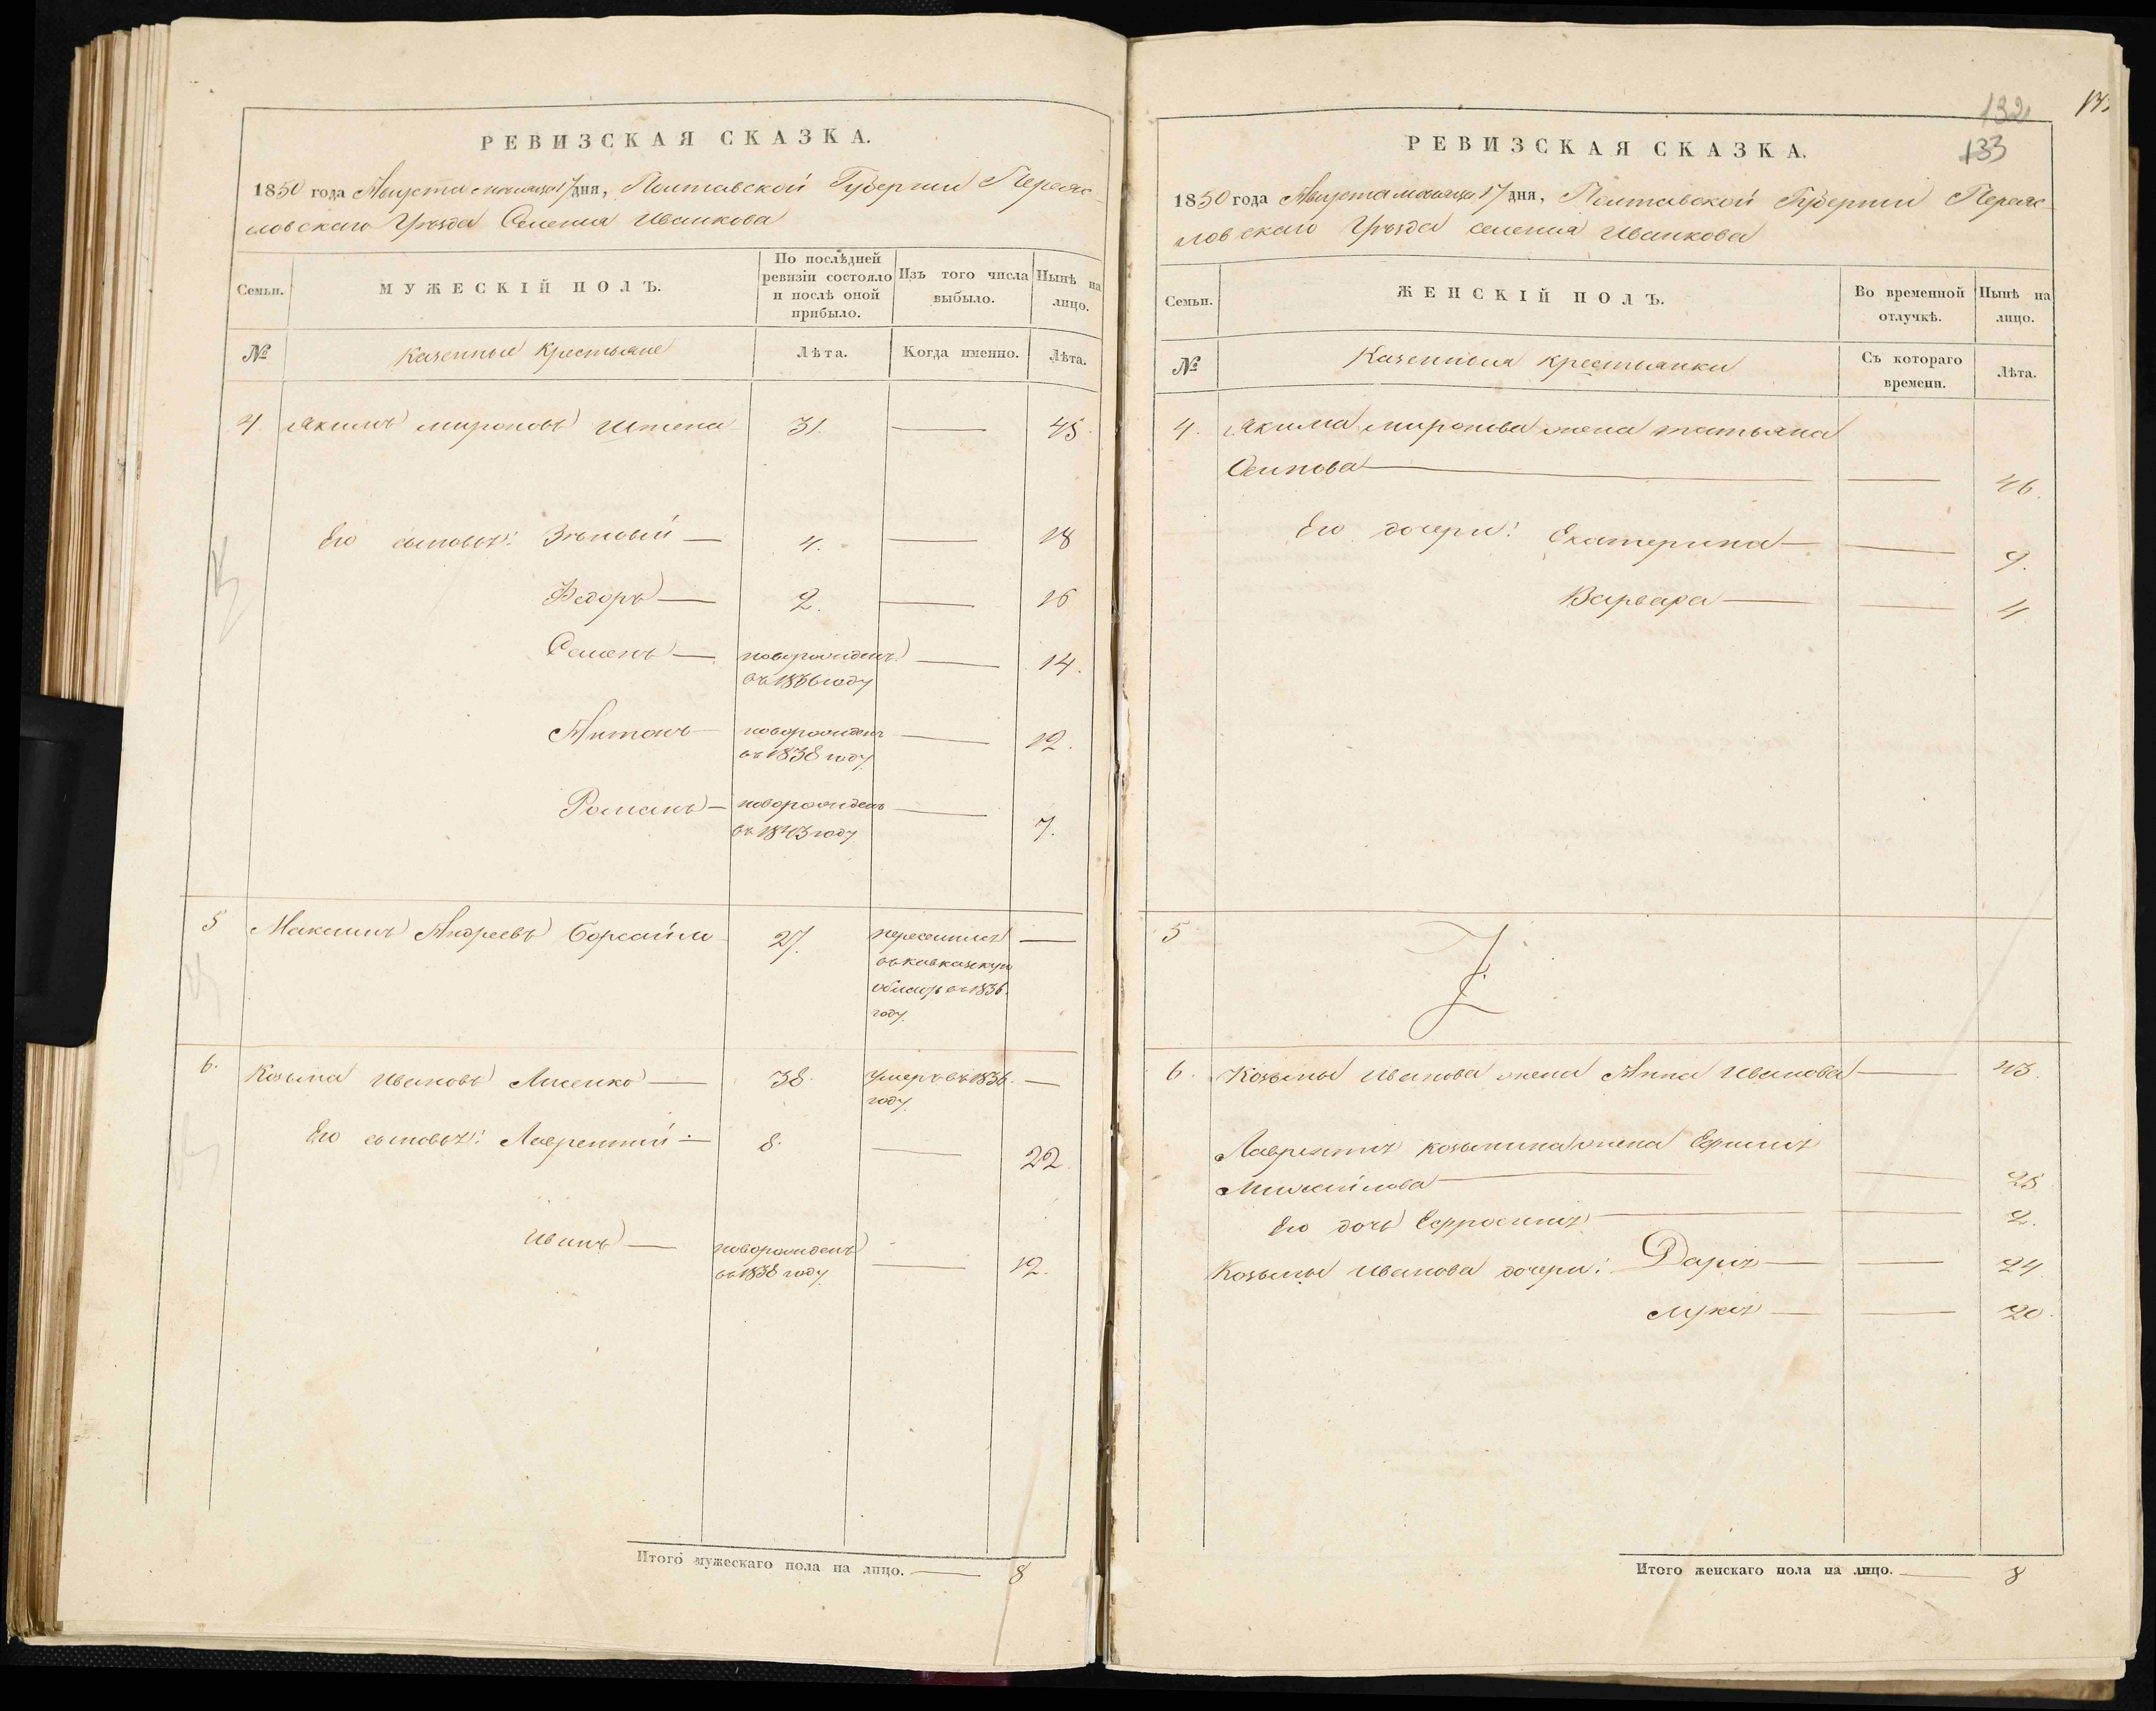 РЕВИЗСКАЯ СКАЗКА.
1850 года Августа месяца 17 дня, Полтавской Губернии Переяс
ловскаго Уѣзда Селенія Иванкова
Семьи.
МУЖЕСКІЙ ПОЛЪ.
По послѣдней ревизіи состояло и послѣ оной прибыло.
Изъ того числа выбыло.
Нынѣ на лицо.
№
Казенные Крестьяне
Лѣта.
Когда именно.
Лѣта.
4. Якимъ Мироновъ 31. — 45.
Его сыновья: Зѣновій — 4. — 18
Федоръ — 2. — 16
Семенъ — новорожденъ — 14.
въ 1836 году
Антонъ — новорожденъ — 12.
въ 1838 году
Романъ — новорожденъ — 7.
въ 1843 году
5 Максимъ Андреевъ 27. переселился —
въ кавказскую
область въ 1836.
году.
6. Козьма Ивановъ Лисенко — 38. умеръ въ 1836. —
году.
Его сыновья: Лаврентій — 8. — 22.
Иванъ — новорожденъ — 12.
въ 1838 году
Итого мужескаго пола на лицо. — 8
132
133
РЕВИЗСКАЯ СКАЗКА.
1850 года Августа месяца 17 дня, Полтавской Губерніи Переяс
ловскаго Уѣзда селенія Иванкова
Семьи.
ЖЕНСКІЙ ПОЛЪ.
Во временной отлучкѣ.
Нынѣ на лицо.
№
Казенныя крестьянки
Съ котораго времени.
Лѣта.
4. Якима Миронова жена татьяна
Осипова — — 46.
Его дочери: Екатерина — — 9.
Варвара — — 4
5
6. Козьмы Иванова жена Анна Иванова — 43.
Лаврентія козьмина жена Ефимія
Михайлова — — 25
Его дочь Ефросинія — — 2.
Козьмы Иванова дочери: Дарія — — 24
Лукія — — 20.
Итого женскаго пола на лицо. — 8